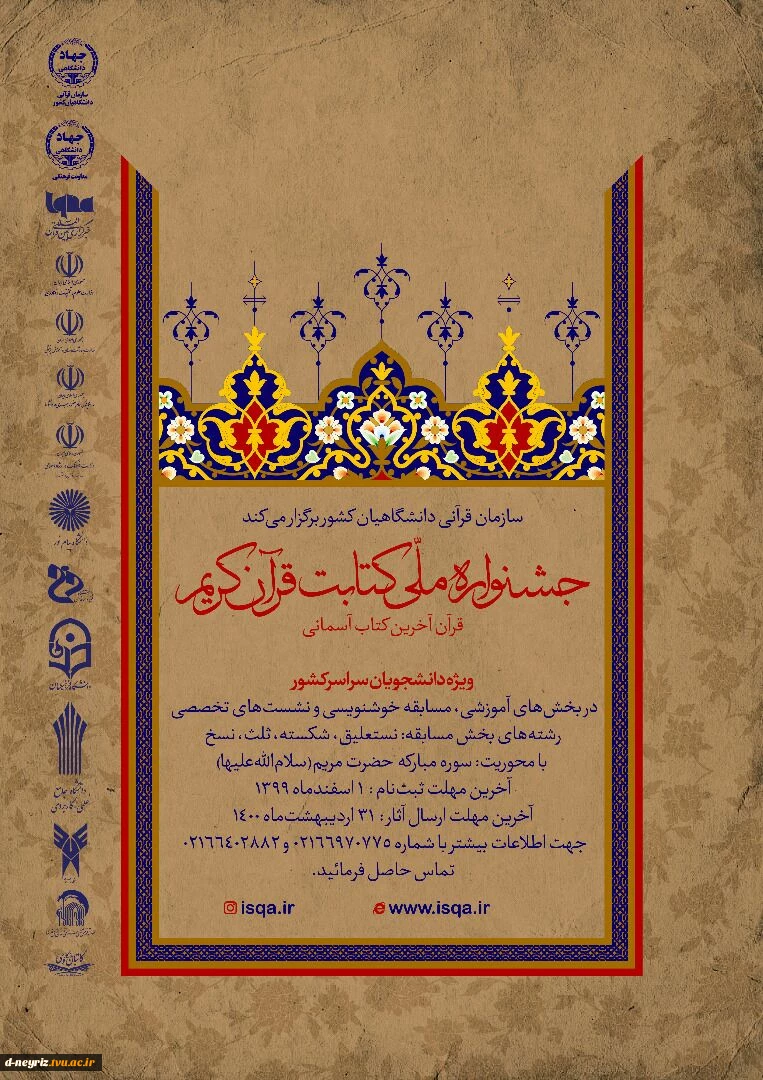 سازمان قرآنی دانشگاهیان کشور برگزار می‌کند
جشنواره ملّی کتابت قرآن کریم
قرآن آخرین کتاب آسمانی
ویژه دانشجویان سراسر کشور
در بخش‌های آموزشی، مسابقه خوشنویسی و نشست‌های تخصصی
رشته‌های بخش مسابقه: نستعلیق، شکسته، ثلث، نسخ
با محوریت: سوره مبارکه حضرت مریم (سلام‌الله‌علیها)
آخرین مهلت ثبت‌نام : ۱ اسفندماه ۱۳۹۹
آخرین مهلت ارسال آثار : ۳۱ اردیبهشت‌ماه ۱۴۰۰
جهت اطلاعات بیشتر با شماره ۰۲۱۶۶۹۷۰۷۷۵ و ۰۲۱۶۶۴۰۲۸۸۲
تماس حاصل فرمائید.
www.isqa.ir
isqa.ir
جهاد
دانشگاهی
سازمان قرآنی
دانشگاهیان کشور
جهاد
دانشگاهی
معاونت فرهنگی
iqna
دانشگاه پیام نور
دانشگاه فرهنگیان
دانشگاه جامع
علمی کاربردی
d-neyriz.tvu.ac.ir